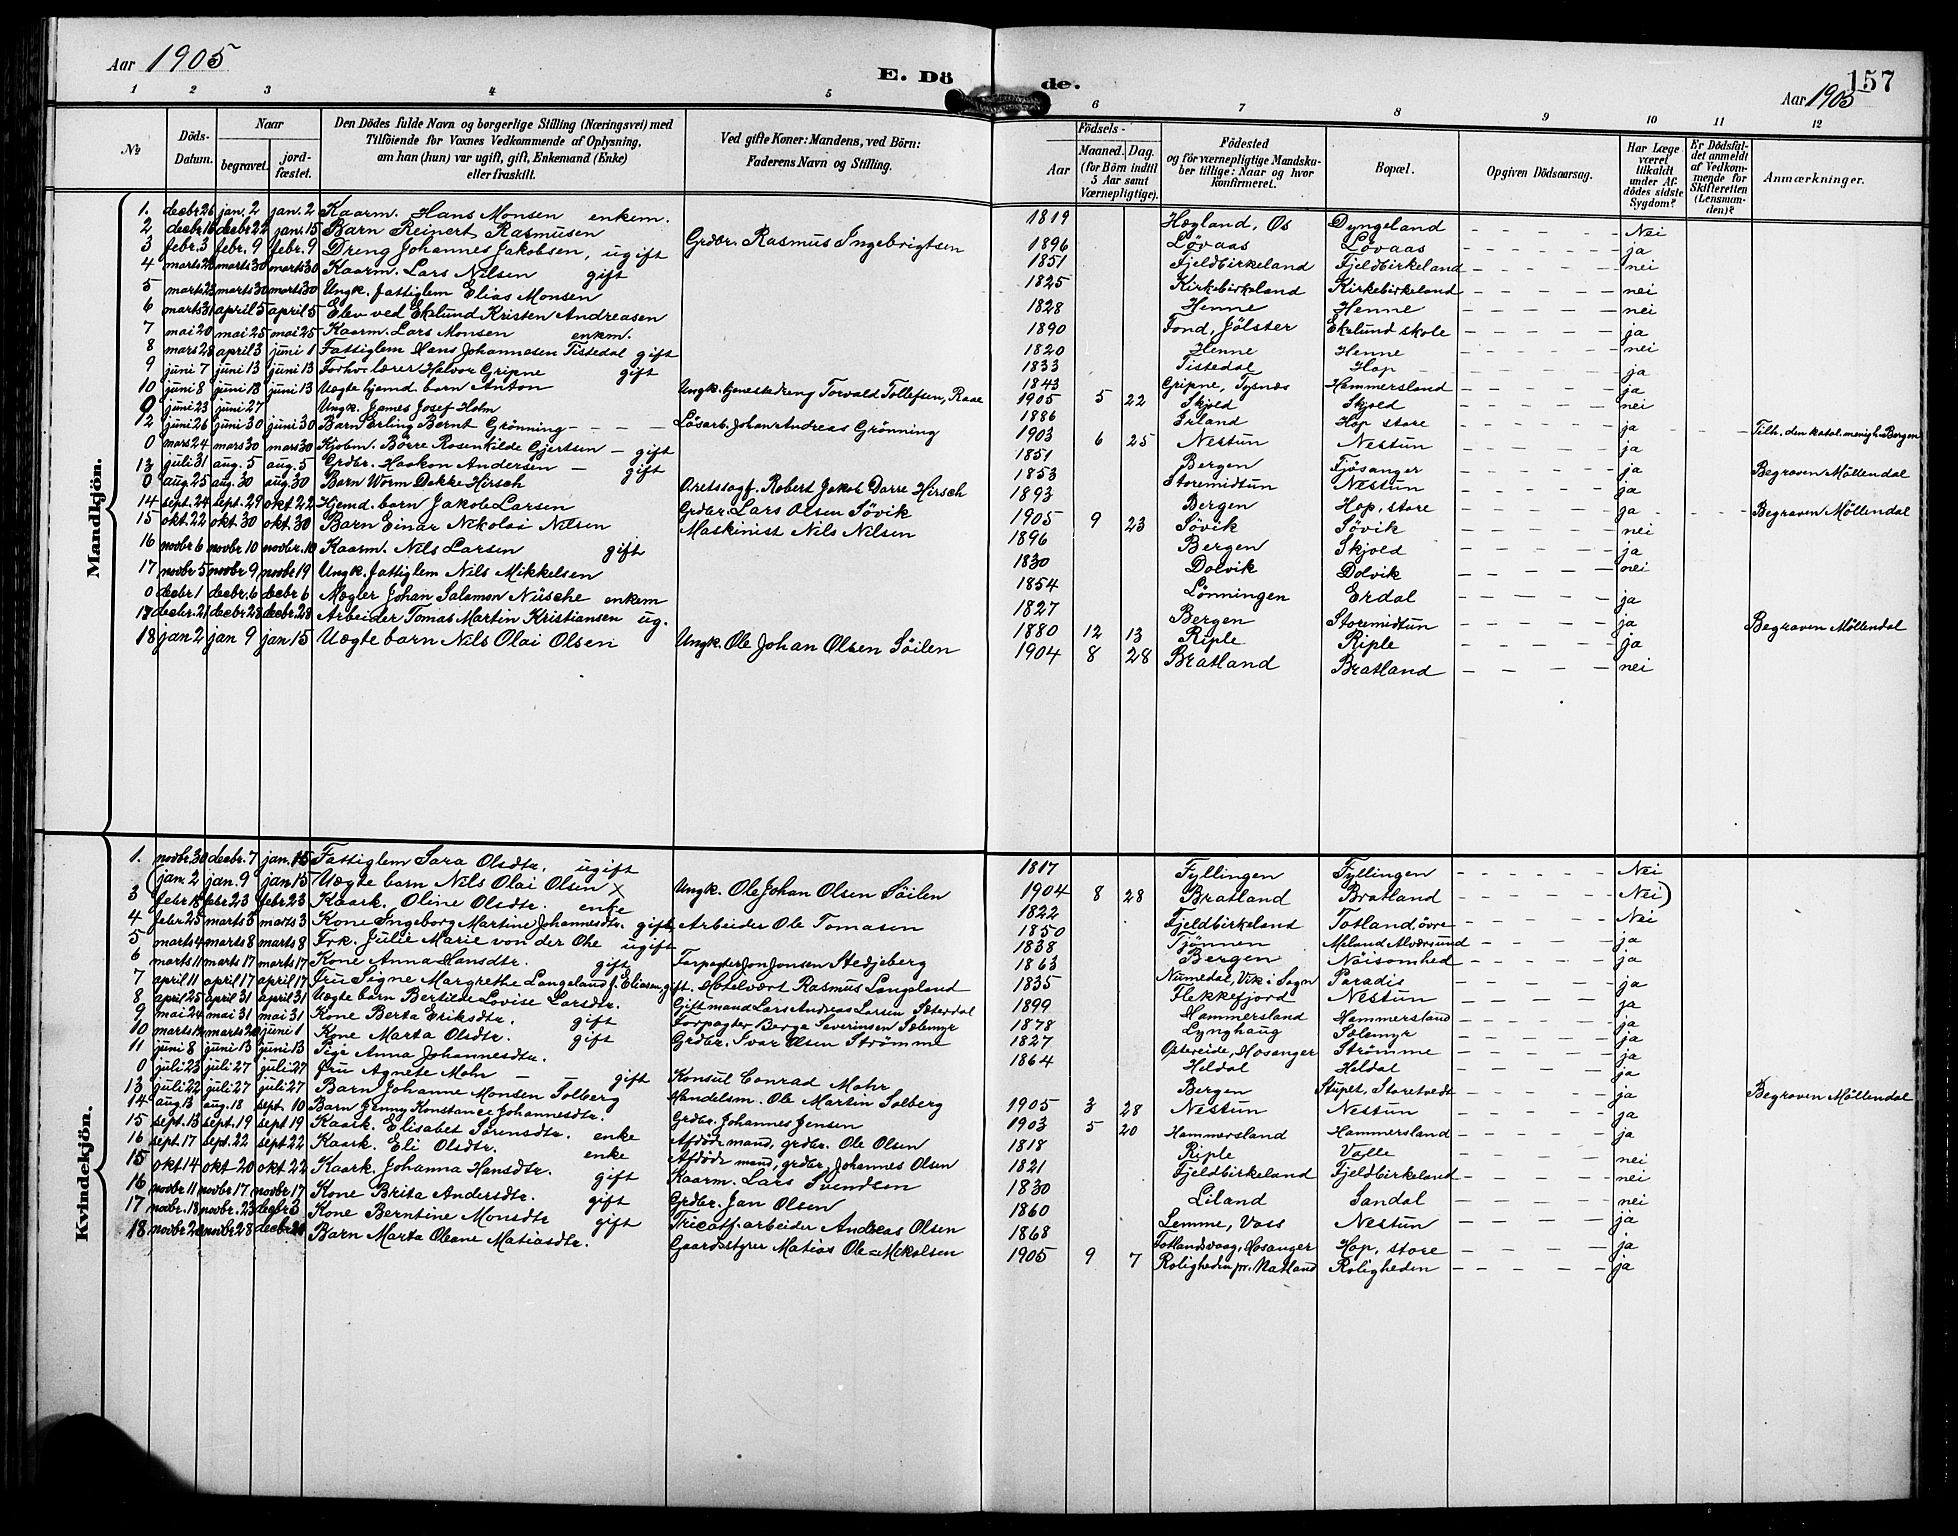 Aar 1905
E. Dö de.
157
Aar 1905
1 2 3 4 5 6 7 8 9 10 11 12
№
Döds-Datum.
Naar
begravet.
jord-fæstet.
Den Dödes fulde Navn og borgerlige Stilling (Næringsvei) med Tilföiende for Voxnes Vedkommende af Oplysning, om han (hun) var ugift, gift, Enkemand (Enke) eller fraskilt.
Ved gifte Koner: Mandens, ved Börn: Faderens Navn og Stilling.
Födsels-
Aar
Maaned. Dag.
(for Börn indtil 5 Aar samt Værnepligtige).
Födested og for værnepligtige Mandska-ber tillige: Naar og hvor konfirmeret.
Bopæl.
Opgiven Dödsaarsag.
Har Læge været tilkaldt under Af-dödes sidste Sygdom?
Er Dödsfal-det anmeldt af Vedkom-mende for Skifteretten (Lensman-den)?
Anmærkninger.
Mandkjön.
1. decbr 26 jan. 2 jan. 2 Kaarm. Hans Monsen enkem. 1819 Hægland, Os Dyngeland Nei
2 decbr 16 decbr 22 jan. 15 Barn Reinert Rasmusen Grdbr. Rasmus Ingebrigtsen 1896 Lövaas Lövaas ja
3 febr. 3 febr. 9 febr. 9 Dreng Johannes Jakobsen, ugift 1851 Fjeldbirkeland Fjeldbirkeland nei
4 marts 23 marts 30 marts 30 Kaarm. Lars Nilsen gift 1825 Kirkebirkeland Kirkebirkeland nei
5 marts 23 marts 30 marts 30 Ungk. fattiglem Elias Monsen 1828 Henne Henne nei
6 marts 31 april 5 april 5 Elev ved Eklund Kristen Andreasen 1890 Fond, Jölster Eklund skole ja
7 mai 20 mai 25 mai 25 Kaarm. Lars Monsen enkem. 1820 Henne Henne nei
8 mars 28 april 3 juni 1 Fattiglem Hans Johannesen Tistedal gift 1833 Tistedal Hop ja
9 juni 7 juni 13 juni 13 Forhv. lærer Halvor Gripne gift 1843 Gripne, Tysnæs Hammersland ja
10 juni 8 juni 13 juni 13 Uægte hjemd. barn Anton Ungk. tjenestedreng Torvald Tollefsen, Raae 1905 5 22 Skjold Skjold nei
0 juni 23 juni 27 Ungk. James Josef Holm 1886 Irland Hop store ja Tilh. den katol. menigh. Bergen
12 juni 26 juni 30 juni 30 Barn Erling Bernt Grönning Lösarb. Johan Andreas Grönning 1903 6 25 Nestun Nestun ja
0 mars 24 mars 30 mars 30 Kjøbm. Börre Rosenkilde Gjertsen gift 1851 Bergen Fjösanger ja Begraven Möllendal
13 juli 31 aug. 5 aug. 5 Grdbr. Haakon Andersen gift 1853 Storemidtun Nestun ja
0 aug. 25 aug. 30 aug. 30 Barn Worm Dekke Hirsch Overetssagf. Robert Jakob Darre Hirsch 1893 Bergen Hop, store ja Begraven Möllendal
14 sept. 24 sept. 29 okt 22 Hjemd. barn Jakob Larsen Grdbr. Lars Olsen Sövik 1905 9 23 Sövik Sövik nei
15 okt. 22 okt. 30 okt. 30 Barn Einar Nikolai Nilsen Maskinist Nils Nilsen 1896 Bergen Skjold ja
16 novbr 6 novbr 10 novbr. 10 Kaarm. Nils Larsen gift 1830 Dolvik Dolvik nei
17 novbr 5 novbr 9 novbr 19 Ungk. fattiglem Nils Mikkelsen 1854 Lönningen Erdal ja
0 decbr 1 decbr. 6 decbr 6 Mægler Johan Salomon Nüsche enkem 1827 Bergen Storemidtun ja Begraven Möllendal
17 decbr. 21 decbr 28 decbr 28 Arbeider Tomas Martin Kristiansen ug. 1880 12 13 Riple Riple ja
18 jan 2 jan 9 jan. 15 Uægte barn Nils Olai Olsen Ungk. Ole Johan Olsen Söilen 1904 8 28 Bratland Bratland nei
Kvindekjön.
1. novbr. 30 decbr. 7 jan. 15 Fattiglem Sara Olsdtr. ugift 1817 Fyllingen Fyllingen Nei
(jan. 2 jan. 9 jan 15 Uægte barn Nils Olai Olsen x Ungk. Ole Johan Olsen Söilen 1904 8 28 Bratland Bratland Nei)
3 febr 18 febr 23 febr. 23 Kaark. Oline Olsdtr. enke 1822 Fjeldbirkeland Totland, övre Nei
4 febr 25 marts 3 marts 3 Kone Ingeborg Martine Johannesdtr. gift, Arbeider Ole Tomasen 1850 Tjönnen Meland Alversund ja
5 marts 4 marts 8 marts 8 Frk. Julie Marie von der Ohe ugift 1838 Bergen Nöisomhed ja
6 marts 11 marts 17 marts 17 Kone Anna Hansdtr. gift Forpagter Jon Jonsen Stedjeberg 1863 Numedal, Vik i Sogn Paradis ja
7 april 11 april 17 april 17 Fru Signe Margrethe Langeland f. Eliasen, gift. Hotelvært Rasmus Langeland 1835 Flekkefjord Nestun ja
8 april 25 april 31 april 31 Uægte barn Bertilde Lovise Larsdtr. Gift mand Lars Andreas Larsen Sterdal 1899 Hammersland Hammersland ja
9 mai 24 mai 31 mai 31 Kone Berta Eriksdtr. gift Forpagter Berge Severinsen Sælemyr 1878 Lynghaug Sælemyr ja
10 marts 14 marts 20 juni 1 Kone Marta Olsdtr. gift Grdbr. Ivar Olsen Strömme 1827 Ostereide, Hosanger Strömme ja
11 juni 8 juni 13 juni 13 Pige Anna Johannesdtr. 1864 Heldal Heldal ja
0 juli 23 juli 27 juli 27 Fru Agnete Mohr gift Konsul Conrad Mohr Bergen Stupet, Storetvedt ja Begraven Möllendal
13 juli 22 juli 27 juli 27 Barn Johanne Monsen Solberg Handelsm. Ole Martin Solberg 1905 3 28 Nestun Nestun ja
14 aug 13 aug. 18 sept. 10 Barn Jenny Konstance Johannesdtr. Grdbr. Johannes Jensen 1903 5 20 Hammersland Hammersland ja
15 sept. 13 sept. 19 sept 19 Kaark. Elisabet Sörensdtr. enke Afdöde mand, grdbr. Ole Olsen 1818 Riple Valle nei
16 sept. 17 sept. 22 sept 22 Kaark. Eli Olsdtr. enke Afdöde mand, grdbr. Johannes Olsen 1821 Fjeldbirkeland Fjeldbirkeland nei
15 okt 14 okt 20 okt 22 Kaark. Johanna Hansdtr. gift Kaarm. Lars Svendsen 1830 Liland Sandal nei
16 novbr 11 novbr 17 novbr 17 Kone Brita Andersdtr. gift Grdbr. Jan Olsen 1860 Lemme, Voss Nestun ja
17 novbr. 18 novbr. 23 decbr 3 Kone Berntine Monsdtr gift Tricotf. arbeider Andreas Olsen 1868 Totlandsvaag, Hosanger Hop, store ja
18 novbr 20 novbr 28 decbr Barn Marta Oleane Matiasdtr. Gaardsstyrer Matias Ole Mikalsen 1905 9 7 Roligheden pr. Natland Roligheden ja